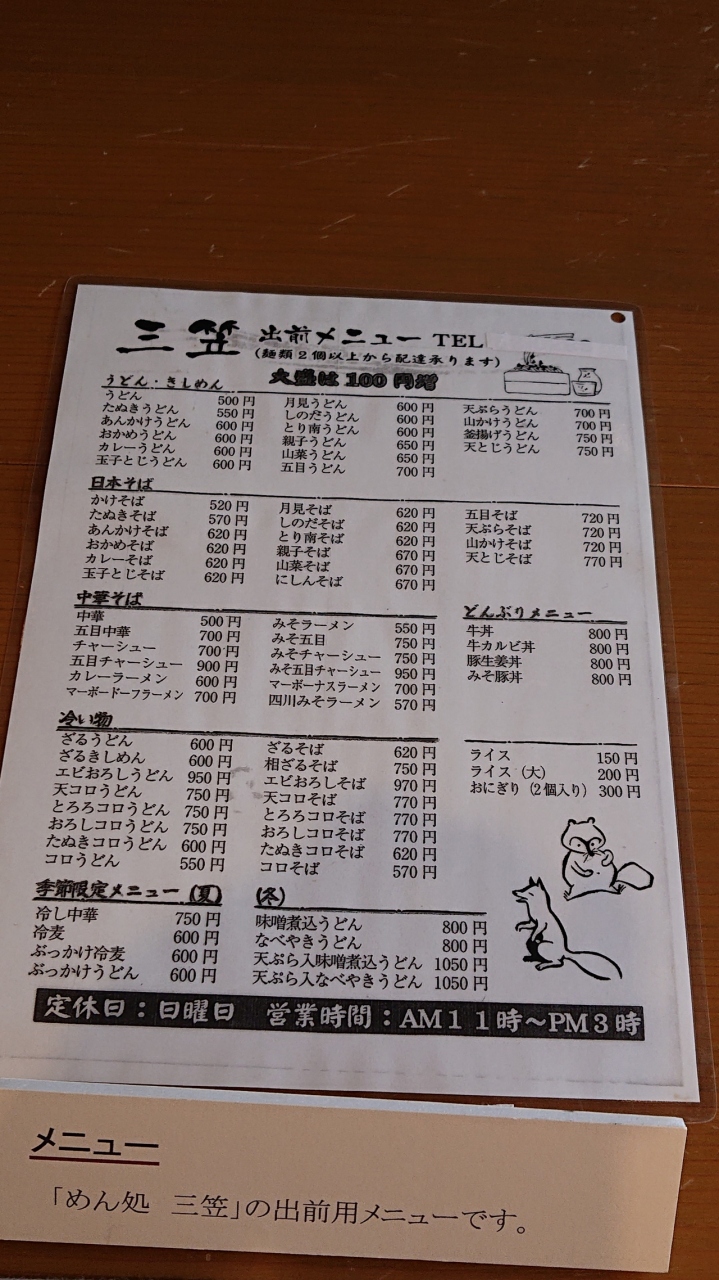 三笠 出前メニュー TEL
(麺類2個以上から配達承ります)
大盛は100円増
うどん・きしめん
うどん 500円
たぬきうどん 550円
あんかけうどん 600円
おかめうどん 600円
カレーうどん 600円
玉子とじうどん 600円
月見うどん 600円
しのだうどん 600円
とり南うどん 600円
親子うどん 650円
山菜うどん 650円
五目うどん 700円
天ぷらうどん 700円
山かけうどん 700円
釜揚げうどん 750円
天とじうどん 750円
日本そば
かけそば 520円
たぬきそば 570円
あんかけそば 620円
おかめそば 620円
カレーそば 620円
玉子とじそば 620円
月見そば 620円
しのだそば 620円
とり南そば 620円
親子そば 670円
山菜そば 670円
にしんそば 670円
五目そば 720円
天ぷらそば 720円
山かけそば 720円
天とじそば 770円
中華そば
中華 500円
五目中華 700円
チャーシュー 700円
五目チャーシュー 900円
カレーラーメン 600円
マーボードーフラーメン 700円
みそラーメン 550円
みそ五目 750円
みそチャーシュー 750円
みそ五目チャーシュー 950円
マーボーナスラーメン 700円
四川みそラーメン 570円
どんぶりメニュー
牛丼 800円
牛カルビ丼 800円
豚生姜丼 800円
みそ豚丼 800円
冷い物
ざるうどん 600円
ざるきしめん 600円
エビおろしうどん 950円
天コロうどん 750円
とろろコロうどん 750円
おろしコロうどん 750円
たぬきコロうどん 600円
コロうどん 550円
ざるそば 620円
相ざるそば 750円
エビおろしそば 970円
天コロそば 770円
とろろコロそば 770円
おろしコロそば 770円
たぬきコロそば 620円
コロそば 570円
ライス 150円
ライス(大) 200円
おにぎり(2個入り) 300円
季節限定メニュー (夏)
冷し中華 750円
冷麦 600円
ぶっかけ冷麦 600円
ぶっかけうどん 600円
(冬)
味噌煮込うどん 800円
なべやきうどん 800円
天ぷら入味噌煮込うどん 1050円
天ぷら入なべやきうどん 1050円
定休日:日曜日 営業時間:AM11時~PM3時
メニュー
「めん処 三笠」の出前用メニューです。